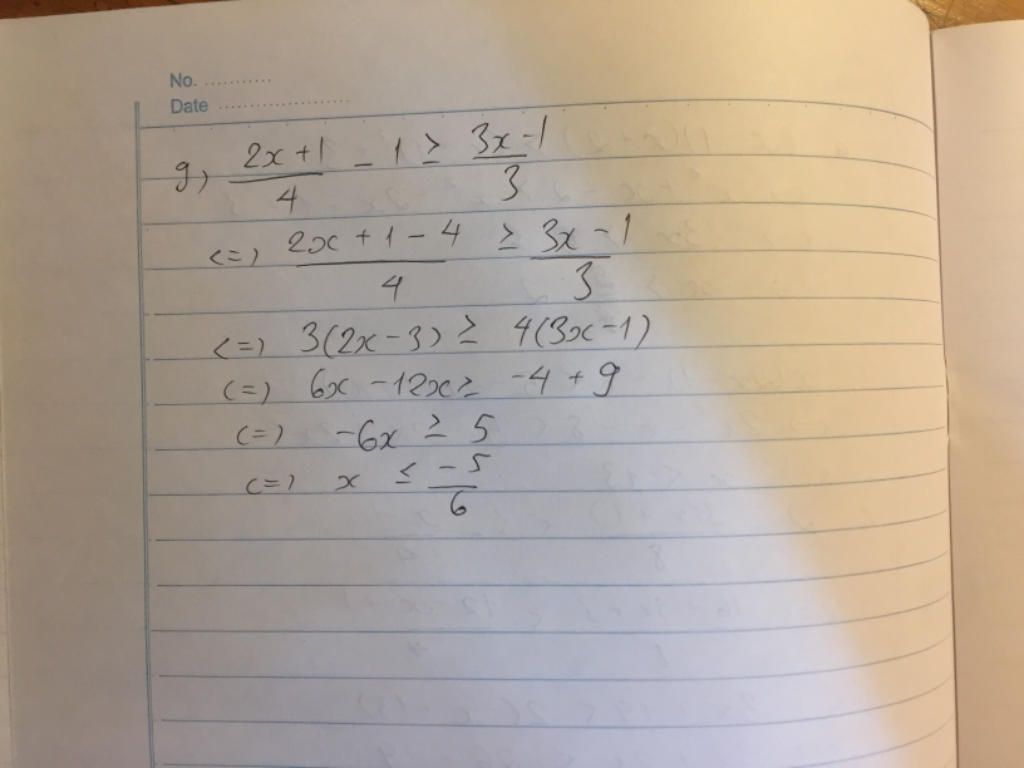 No. ...........
Date ....................
g) (2x+1)/4 - 1 ≥ (3x-1)/3
<=) (2x+1-4)/4 ≥ (3x-1)/3
<=) 3(2x-3) ≥ 4(3x-1)
<=) 6x -12x ≥ -4 + 9
<=) -6x ≥ 5
<=) x ≤ -5/6